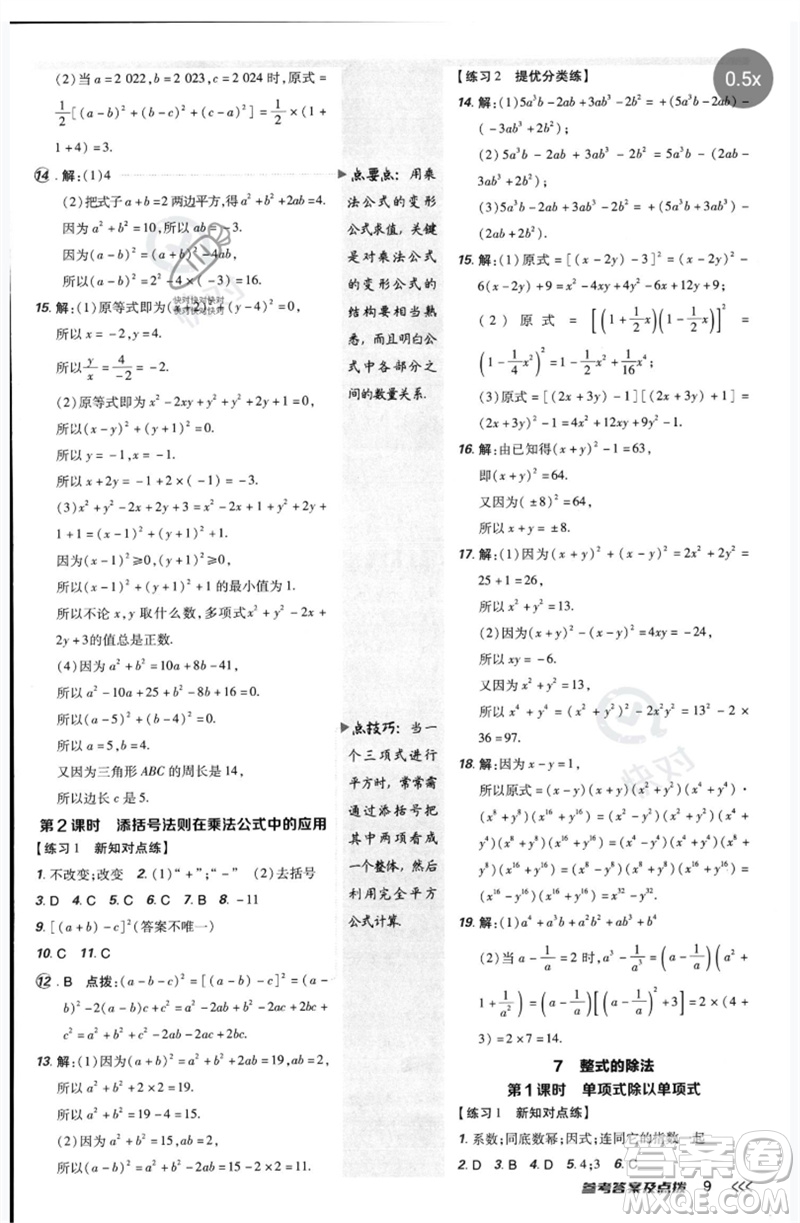 (2)当a=2 022,b=2 023,c=2 024时,原式=
1/2[(a-b)²+(b-c)²+(c-a)²]=1/2×(1+
1+4)=3.
14.解:(1)4
(2)把式子a+b=2两边平方,得a²+b²+2ab=4.
因为a²+b²=10,所以ab=-3.
因为(a-b)²=(a+b)²-4ab,
所以(a-b)²=2²-4×(-3)=16.
15.解:(1)原等式即为(x+2)²+(y-4)²=0,
所以x=-2,y=4.
所以y/x=4/-2=-2.
(2)原等式即为x²-2xy+y²+y²+2y+1=0.
所以(x-y)²+(y+1)²=0.
所以x=y=-1,x=-1.
所以x+2y=-1+2×(-1)=-3.
(3)x²+y²-2x+2y+3=x²-2x+y²+2y+
1+1+1=(x-1)²+(y+1)²+1.
因为(x-1)²≥0,(y+1)²≥0,
所以(x-1)²+(y+1)²+1的最小值为1.
所以不论x,y取什么数,多项式x²+y²-2x+
2y+3的值总是正数.
(4)因为a²+b²=10a+8b-41,
所以a²-10a+25+b²-8b+16=0.
所以(a-5)²+(b-4)²=0.
所以a=5,b=4.
又因为三角形ABC的周长是14,
所以边长c是5.
第2课时 添括号法则在乘法公式中的应用
【练习1 新知对点练】
1.不改变;改变 2.(1)“+”;“-” (2)去括号
3.D 4.C 5.C 6.C 7.B 8.-11
9.[(a+b)-c]²(答案不唯一)
10.C 11.C
12.B 点拨:(a-b-c)²=[(a-b)-c]²=(a-
b)²-2(a-b)c+c²=a²+b²-2ab-2ac+2bc+
c²=a²+b²+c²-2ab-2ac+2bc.
13.解:(1)因为(a+b)²=a²+b²+2ab=19,ab=2,
所以a²+b²+2×2=19.
所以a²+b²=15.
(2)因为(a-b)²=a²+b²-2ab=19,ab=2,
所以a²+b²-2×2=19.
所以a²+b²=23.
点要点:用乘
法公式的变形
公式求值,关键
是对乘法公式
的变形公式的
结构要相当熟
悉,而且明白公
式中各部分之
间的数量关系.
点技巧:当一
个三项式进行
平方时,常常需
通过添括号把
其中两项看成
一个整体,然后
利用完全平方
公式计算.
【练习2 提优分类练】
14.解:(1)5a³b-2ab+3ab³-2b²=+(5a³b-2ab)-
(-3ab³+2b²);
(2)5a³b-2ab+3ab³-2b²=+(5a³b+
3ab³)-(2ab+2b²);
(3)5a³b-2ab+3ab³-2b²=+(5a³b+3ab³-2b²)-
(2ab).
15.解:(1)原式=[(x-2y)-3]²=(x-2y)²-
6(x-2y)+9=x²-4xy+4y²-6x+12y+9;
(2)原式=[(1+1/2x)(1-1/2x)]²=
(1-1/4x²)²=1-1/2x²+1/16x⁴;
(3)原式=[(2x+3y)-1][(2x+3y)+1]=
(2x+3y)²-1=4x²+12xy+9y²-1.
16.解:由已知得(x+y)²-1=63,
即(x+y)²=64.
又因为(±8)²=64,
所以x+y=±8.
17.解:(1)因为(x+y)²+(x-y)²=2x²+2y²=
25+1=26,
所以x²+y²=13.
(2)因为(x+y)²-(x-y)²=4xy=-24,
所以xy=-6.
又因为x²+y²=13,
所以x⁴+y⁴=(x²+y²)²-2x²y²=13²-2×
36=97.
18.解:因为x-y=1,
所以原式=(x-y)(x+y)(x²+y²)(x⁴+
y⁴)(x⁸+y⁸)(x¹⁶+y¹⁶)=(x²-y²)(x²+
y²)(x⁴+y⁴)(x⁸+y⁸)(x¹⁶+y¹⁶)=(x⁴-
y⁴)(x⁴+y⁴)(x⁸+y⁸)(x¹⁶+y¹⁶)=(x⁸-
y⁸)(x⁸+y⁸)(x¹⁶+y¹⁶)=
(x¹⁶-y¹⁶)(x¹⁶+y¹⁶)=x³²-y³².
19.解:(1)a⁴+a³b+a²b²+ab³+b⁴
(2)当a-1/a=2时,a³-1/a³=(a-1/a)(a²+
1+1/a²)=(a-1/a)[(a-1/a)²+3]=2×(4+
3)=2×7=14.
7 整式的除法
第1课时 单项式除以单项式
【练习1 新知对点练】
1.系数;同底数幂;因式;连同它的指数一起
2.D 3.D 4.D 5.4;3 6.C
参考答案及点拨 9
0.5x
快对
快对
答案圈